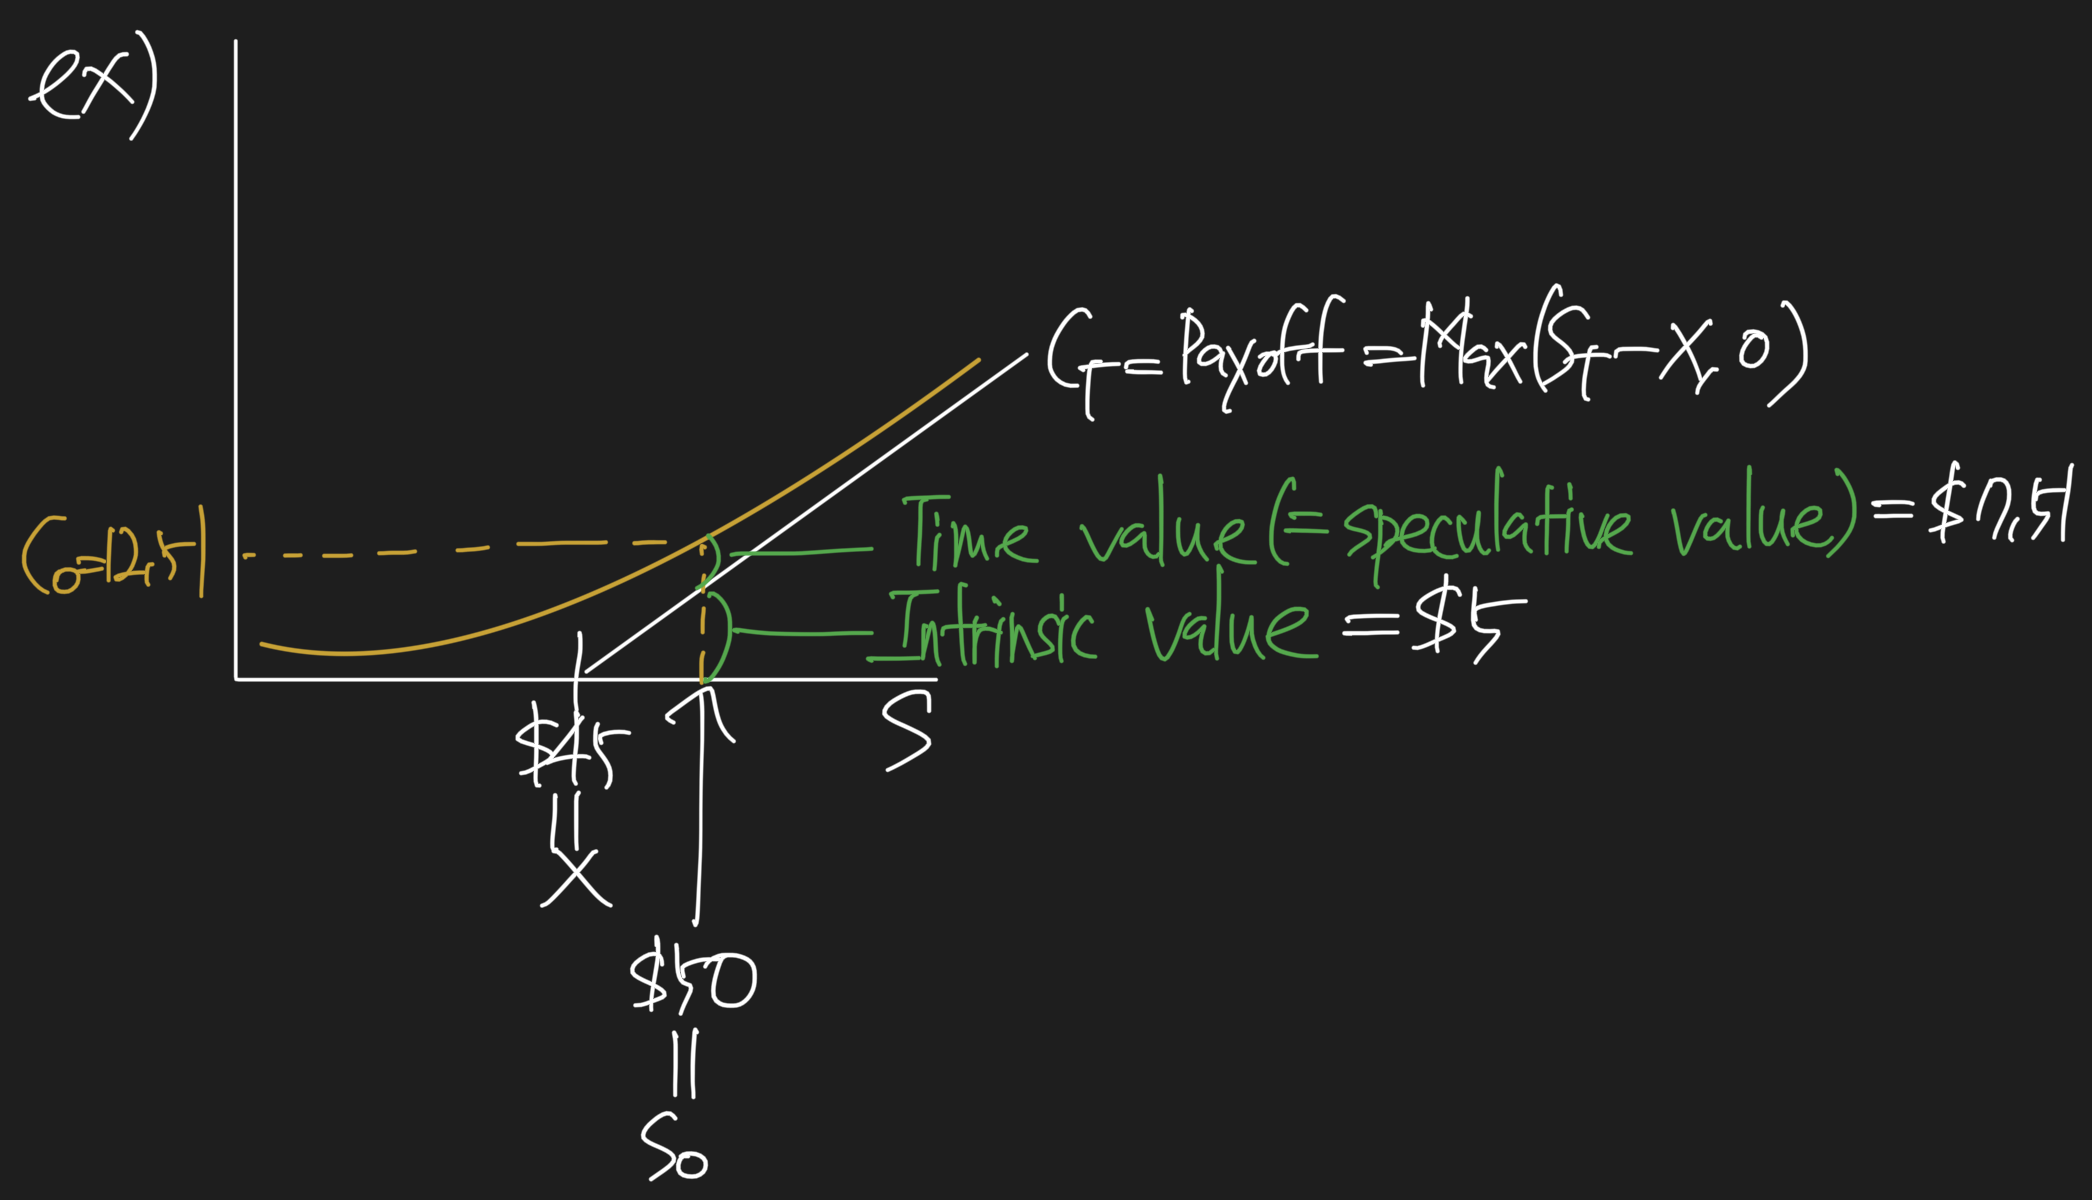 ex)
C_T = Payoff = Max(S_T - X, 0)
Time value (= speculative value) = $7.51
C_0 = 12.51
Intrinsic value = $5
$45
=
X
S
$50
=
S_0